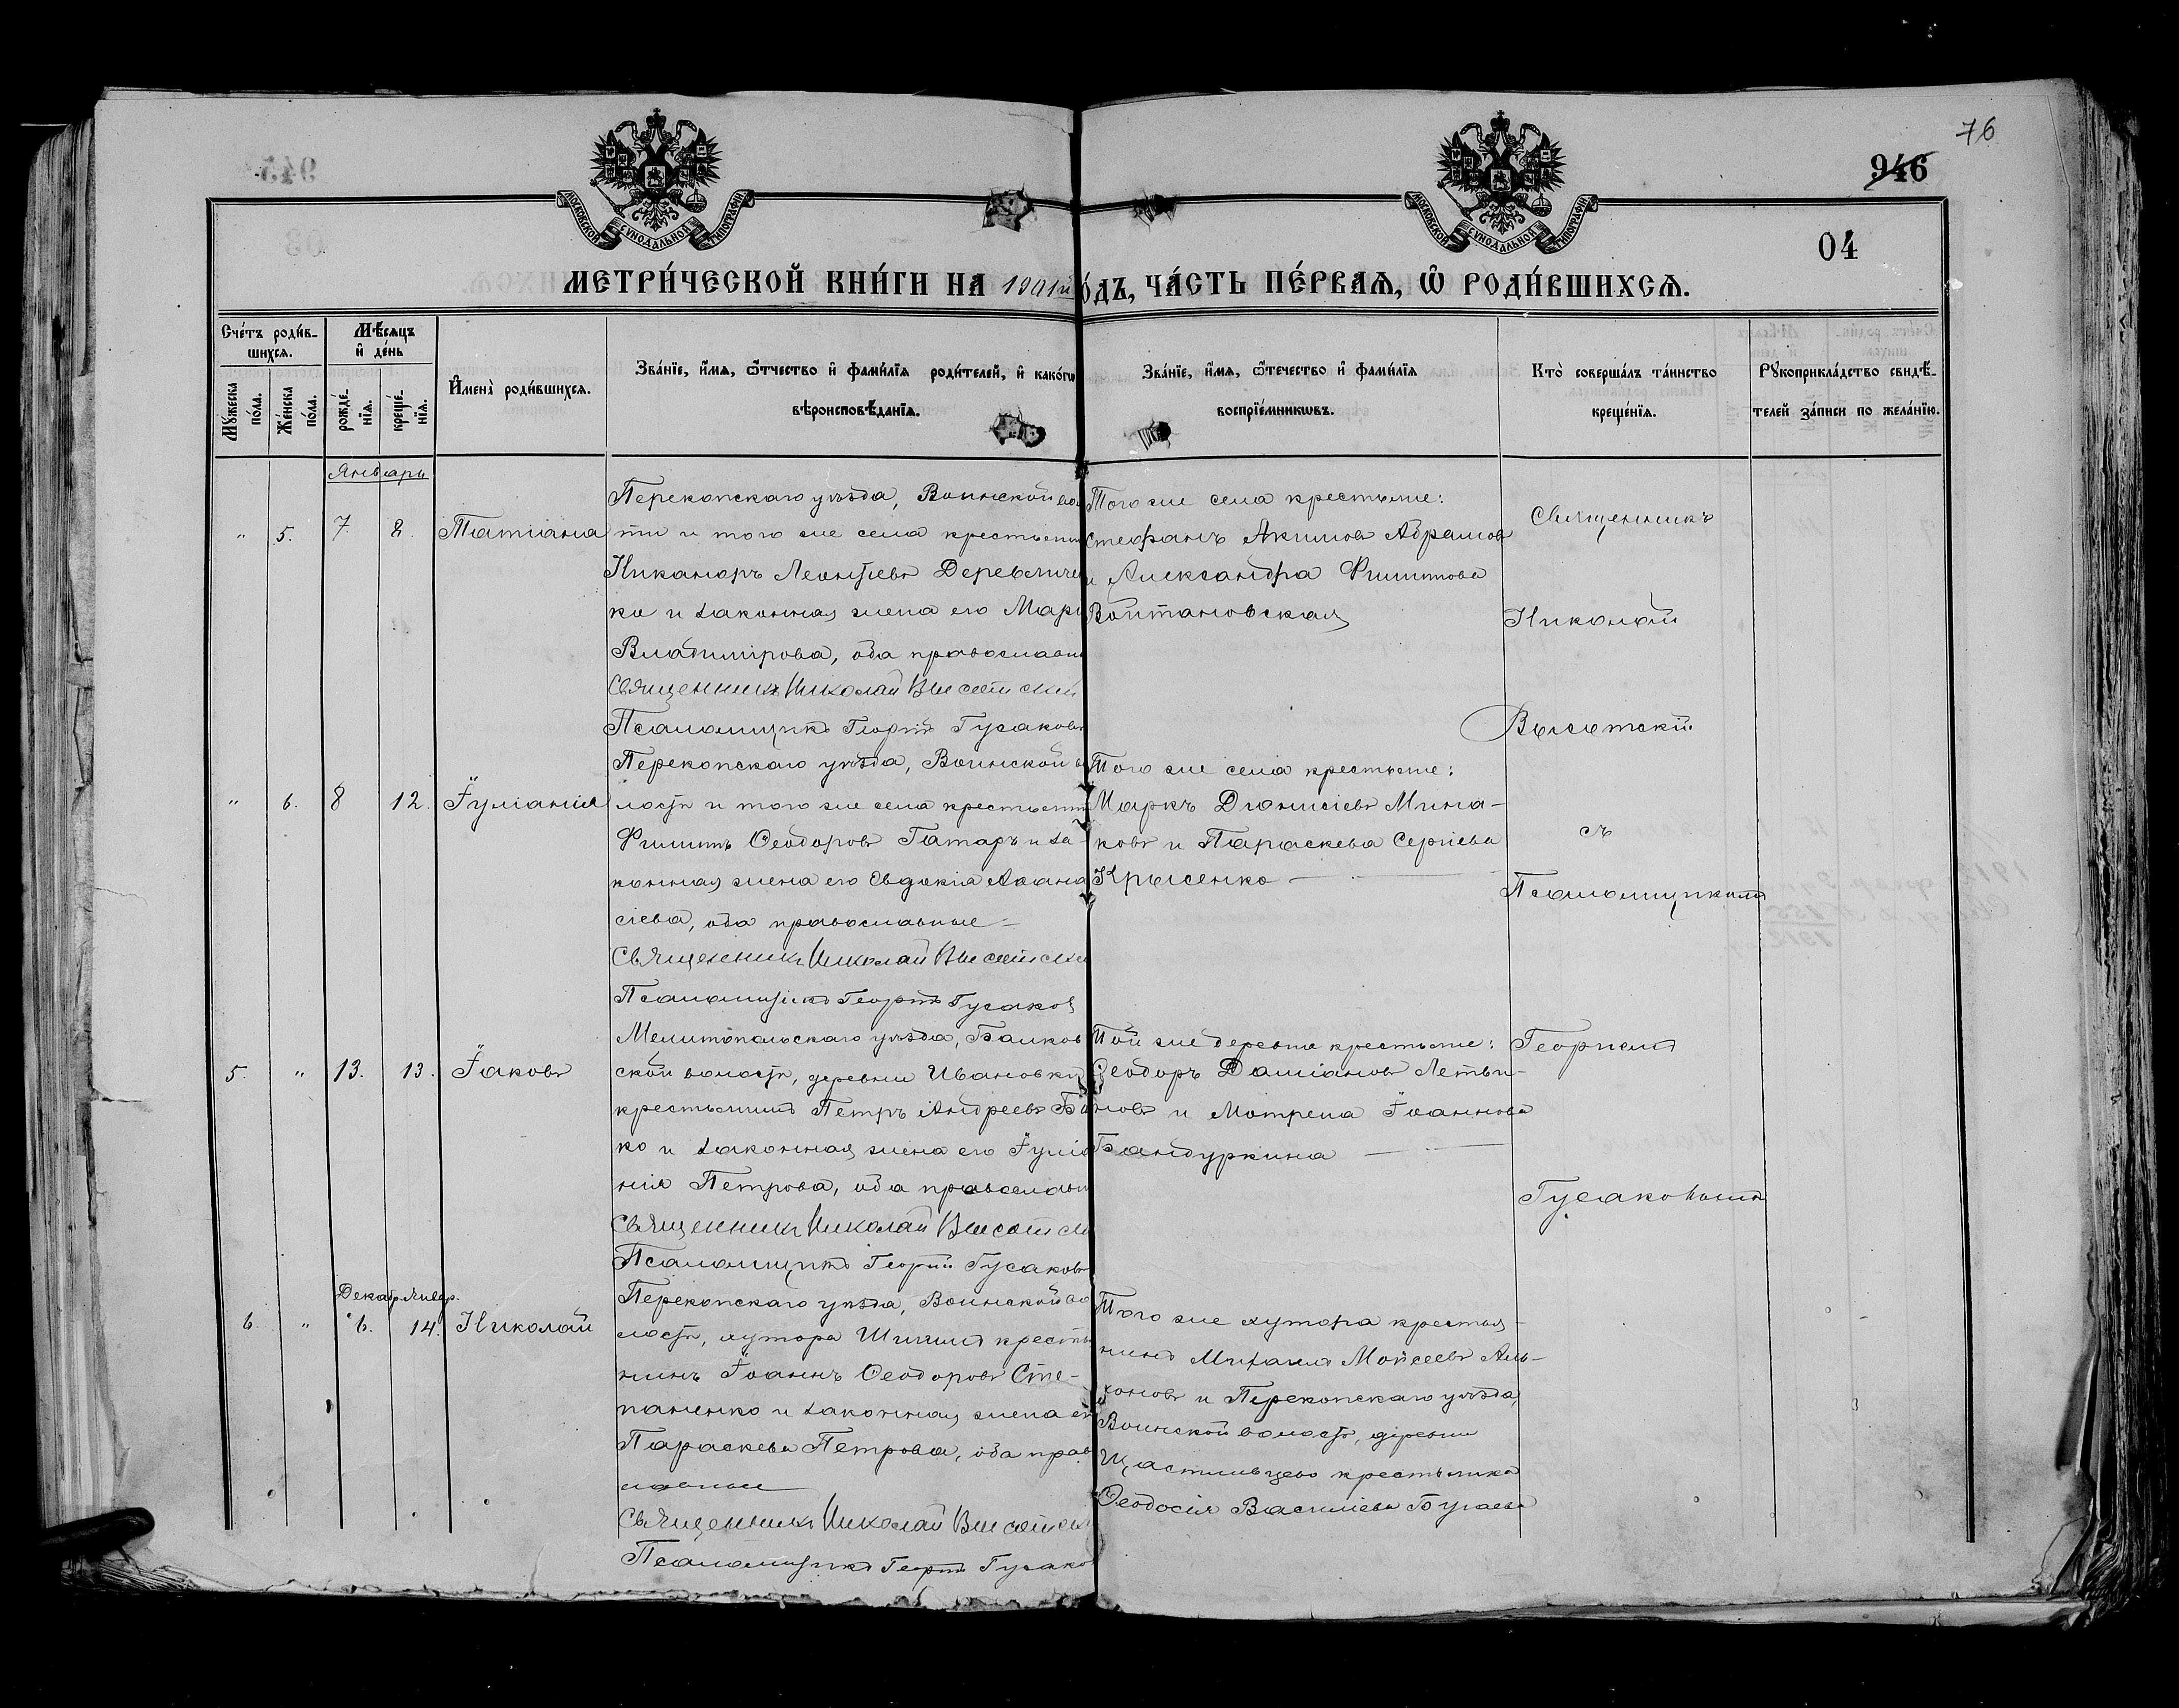 76
946
04
МОСКОВСКОЙ СѴНОДАЛЬНОЙ ТИПОГРАФІИ
МОСКОВСКОЙ СѴНОДАЛЬНОЙ ТИПОГРАФІИ
МЕТРИ́ЧЕСКОЙ КНИ́ГИ НА 1901й
О́ДЪ, ЧА́СТЬ ПЕ́РВАѦ, Ѽ РОДИ́ВШИХСѦ.
Сче́тъ роди́в-
шихсѧ.
Мꙋ́жеска по́ла.
Же́нска по́ла.
Мѣ́сѧцъ
и҆ де́нь
рожде́-
нїѧ.
креще́-
нїѧ.
И҆мена̀ роди́вшихсѧ.
Зва́нїе, и҆́мѧ, ѻ҆́тчество и҆ фами́лїѧ роди́телей, и҆ како́гѡ
вѣроисповѣ́данїѧ.
Зва́нїе, и҆́мѧ, ѻ҆те́чество и҆ фами́лїѧ
воспрїе́мникѡвъ.
Кто̀ соверша́лъ та́инство
креще́нїѧ.
Рꙋкоприкла́дство свидѣ́-
телей за́писи по жела́нїю.
Январь
" 5. 7. 8. Татіана
Перекопскаго уѣзда, Воинской во
ти и того же села крестьянин
Никаноръ Леонтьевъ Деревянчен
ко и законная жена его Марі
Владимірова, оба православн
Священникъ Николай Высотскій
Псаломщикъ Георгій Гусаковъ
Того же села крестьяне:
Стефанъ Акимовъ Абрамовъ
и Александра Филиппова
Войтановская
Священникъ
Николай
Высотскій
съ
Псаломщикомъ
Георгіемъ
Гусаковымъ
" 6. 8 12. Іуліанія
Перекопскаго уѣзда, Воинской в
лости и того же села крестьянин
Филиппъ Ѳеодоровъ Татаръ и за-
конная жена его Евдокія Аѳана
сіева, оба православные
Священникъ Николай Высотски
Псаломщикъ Георгій Гусаковъ
Того же села крестьяне:
Маркъ Діонисіевъ Мина-
ковъ и Параскева Сергіева
Крысенко
5. " 13. 13. Іаковъ
Мелитопольскаго уѣзда, Балков
ской волости, деревни Ивановки
крестьянинъ Петръ Андреевъ Б
ко и законная жена его Іуліа
нія Петрова, оба православн
Священникъ Николай Высотск
Псаломщикъ Георгій Гусаковъ
Той же деревни крестьяне:
Ѳеодоръ Даміановъ Летви-
новъ и Мотрена Іоаннова
Бандуркина
Декабр. Январ.
6. " 6. 14. Николай
Перекопскаго уѣзда, Воинской во
лости, хутора крестья
нинъ Іоаннъ Ѳеодоровъ Сте-
паненко и законная жена ег
Параскева Петрова, оба прав
славные
Священникъ Николай Высотск
Псаломщикъ Георгій Гусако
Того же хутора крестья-
нинъ Михаилъ Моисеевъ
и Перекопскаго уѣзда,
Воинской волости, деревни
Щастливцево крестьянка
Ѳеодосія Василіева Бугаева